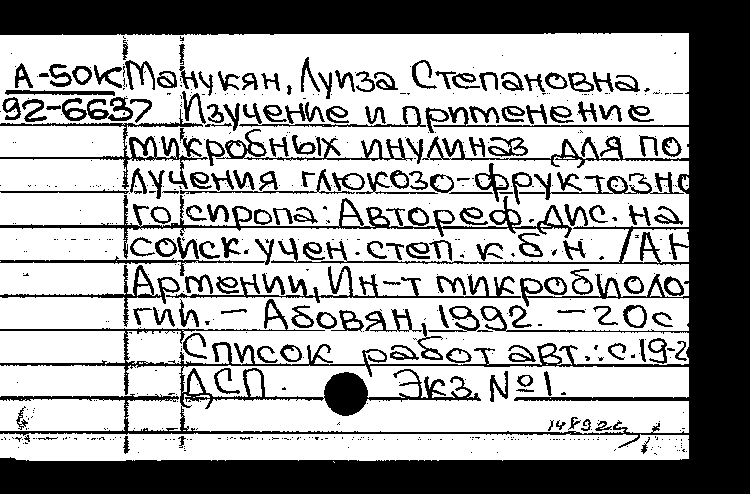 А-50к Манукян, Луиза Степановна.
92-6637 Изучение и применение
микробных инулиназ для по-
лучения глюкозо-фруктозно
го сиропа: Автореф. дис. на
соиск. учен. степ. к.б.н. /АН
Армении, Ин-т микробиоло-
гии. – Абовян, 1992. – 20с.
Список работ авт.: с.19-2
ДСП. Экз. №1.